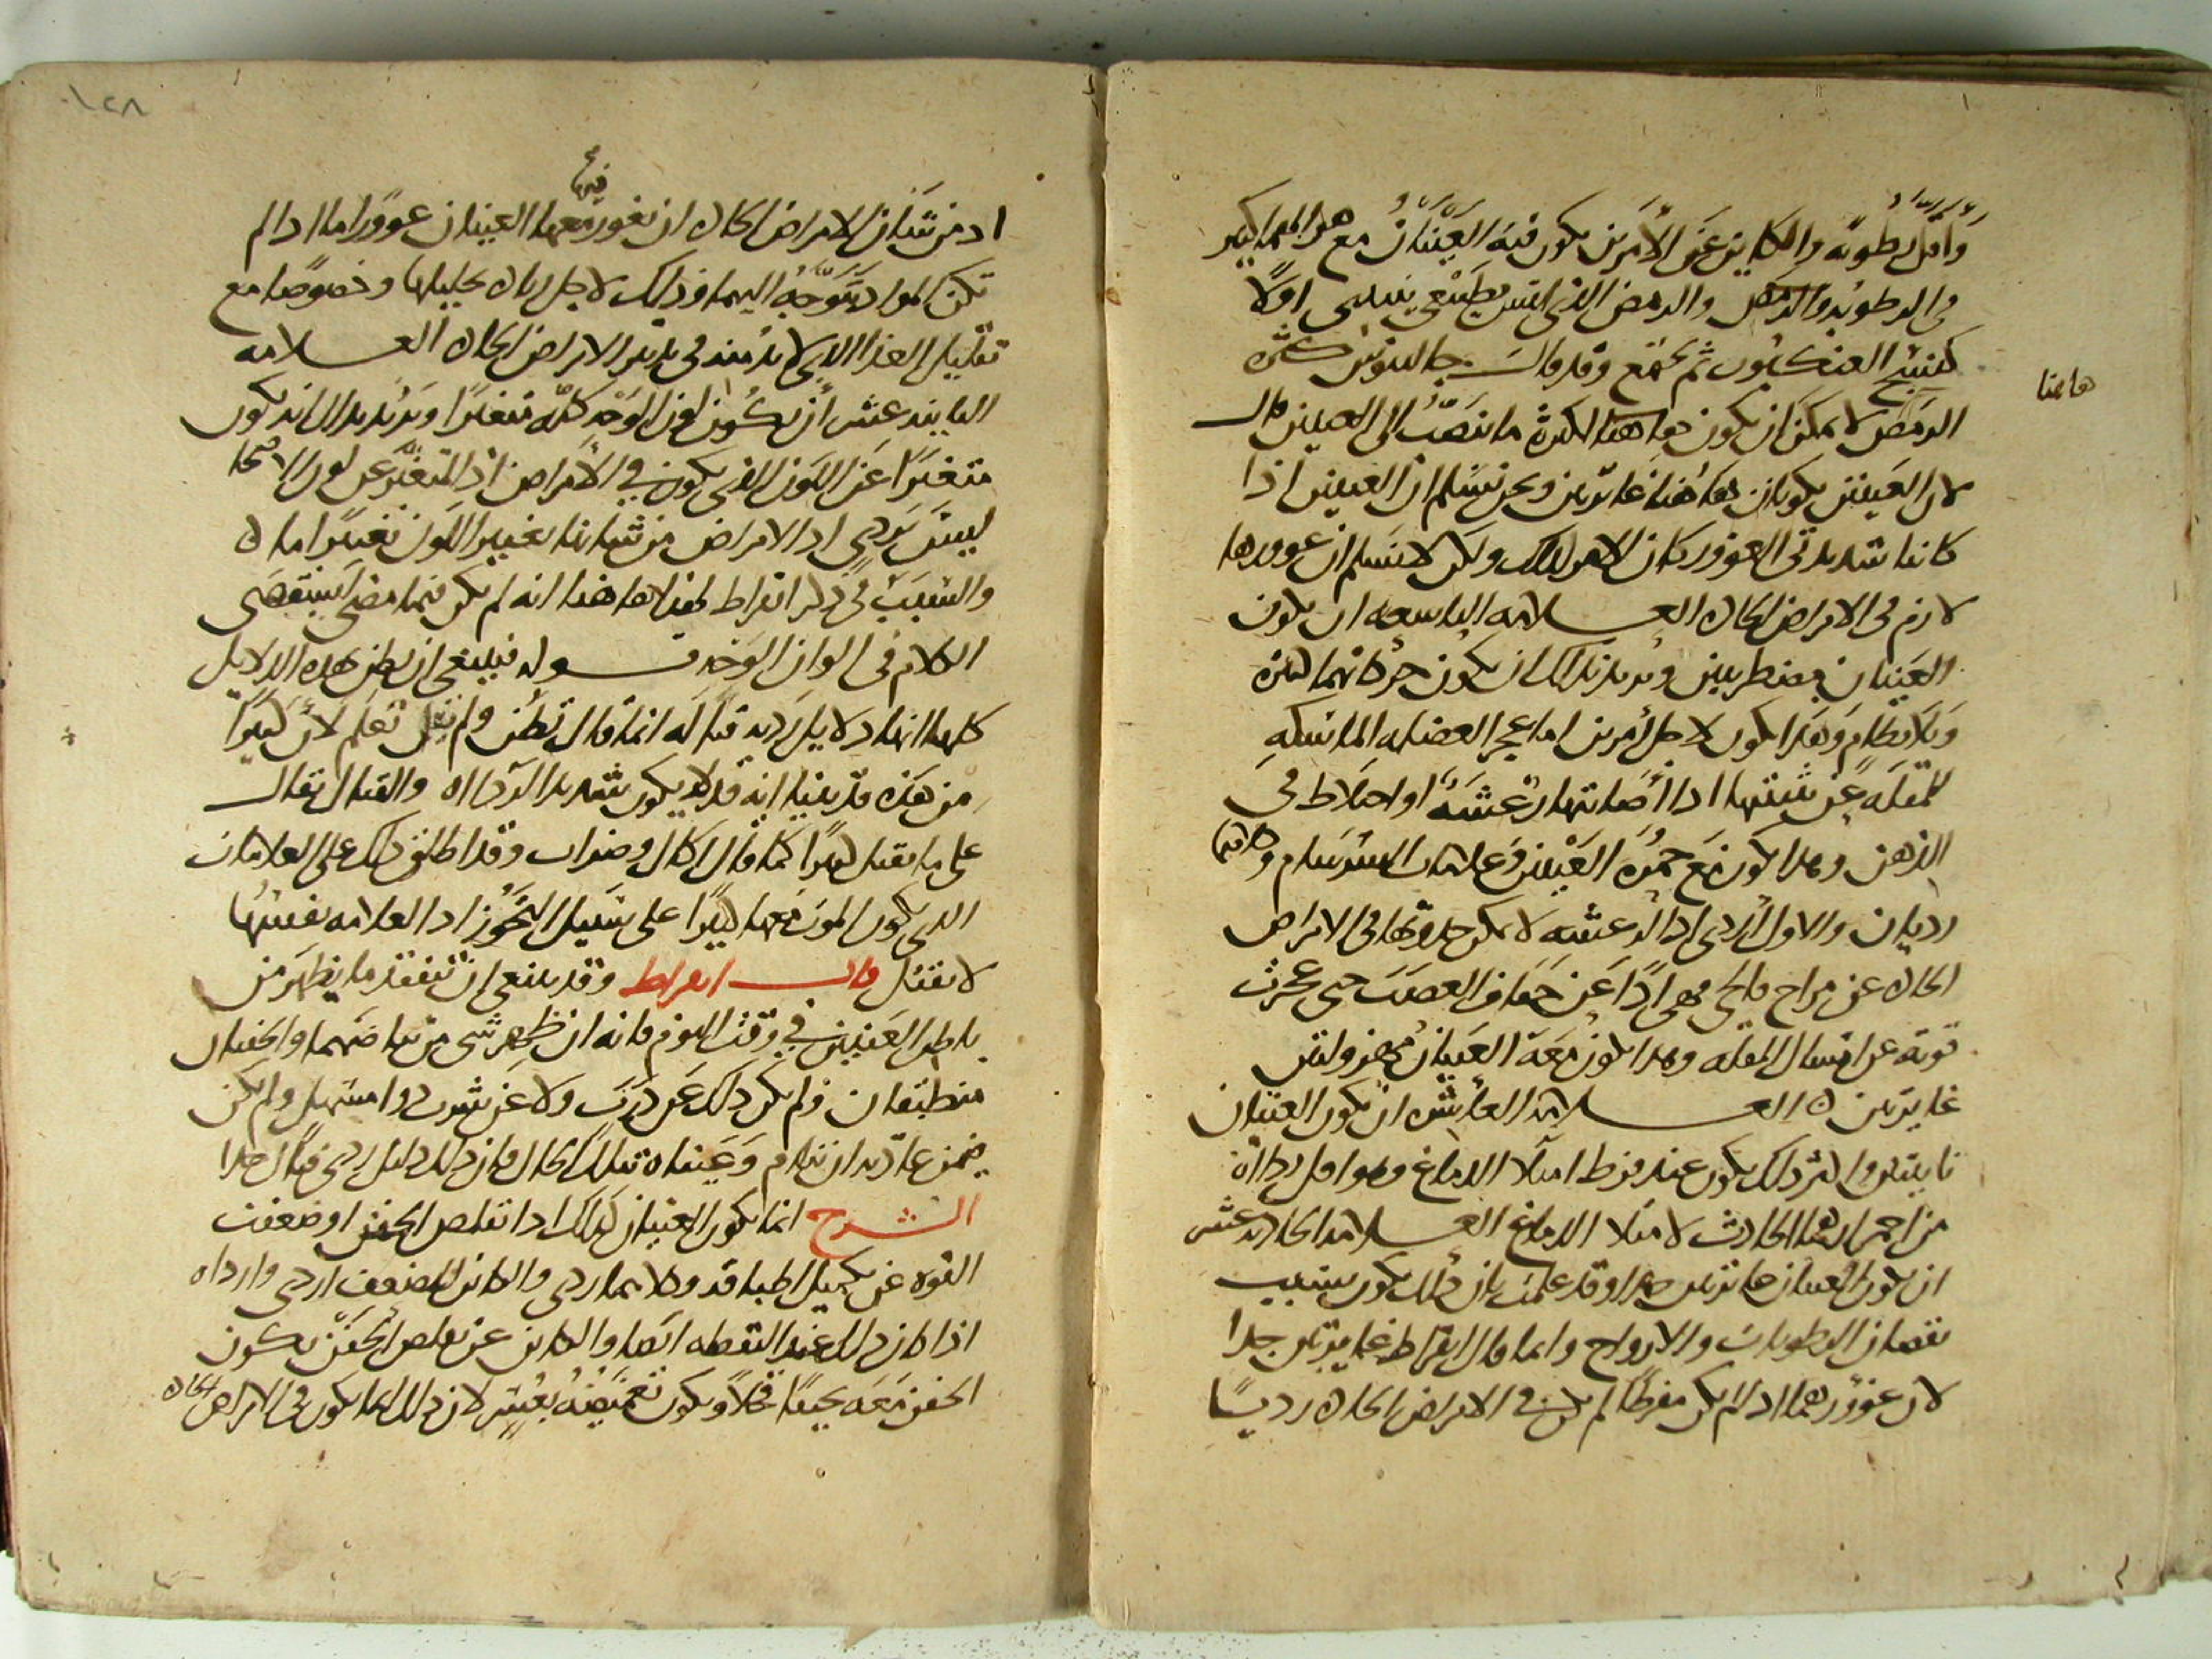 واقل رطوبة والكاين عن الأمرين يكون فيه العينان مع هذا
في الرطوبة والرمص والرمص الذي ليس بطبيعي ينسج اولا
كنسج العنكبوت ثم يجتمع وقد قال جالينوس كثرة
الرمص لا يمكن ان يكون هاهنا لكثرة ما ينصب الى العينين قال
هاهنا
لان العينين يكونان هاهنا غايرتين ونحن نسلم ان العينين اذا
كانتا شديدتي الغوور كان الامر كذلك ولكن لا نسلم ان غوورها
لازم في الامراض الحادة العلامه التاسعه ان يكون
العينان مضطربين ويريد بذلك ان يكون حركاتهما كثيرة
وبلا نظام وهذا يكون لاجل امرين اما عجز العضله الماسكه
للمقله عن تثبتها اذا أصابتها رعشة او اختلاط في
الذهن وهذا يكون مع حمرة العينين وعلامات السرسام وكلاهما
رديان والاول أردى اذ الرعشه لا يمكن حدوثها في الامراض
الحادة عن مزاج فالجي فهي اذا عن جفاف العصب حتى عجزت
قوته عن امساك المقله وهذا يكون معه العينان مهزولتين
غايرتين ه العلامه العاشره ان يكون العينان
ناتيتين واكثر ذلك يكون عند فرط امتلا الدماغ وهو اقل رداءة
من احمرارهما الحادث لامتلا الدماغ العلامه الحاديه عشر
ان يكون العينان غايرتين جدا وقد علمت بان ذلك يكون بسبب
نقصان الرطوبات والارواح وانما قال ابقراط غايرتين جدا
لان غوورهما اذا لم يكن مفرطا لم يكن في الامراض الحادة رديا
١٢٨
اذ من شأن الامراض الحادة ان تغور معها العينان غوورا ما اذا لم
فيها
تكن المواد متوجهة اليهما وذلك لاجل زيادة تحليلها وخصوصا مع
تقليل الغذا الذي لا بد منه في تدبير الامراض الحادة العلامه
الثانيه عشر أن يكون لون الوجه كله متغيرا ويريد بذلك انه يكون
متغيرا عن اللون الذي يكون في الأمراض اذ المتغير عن لون الاصحا
ليس بردي اذ الامراض من شانها تغيير اللون تغييرا ما ه
والسبب في ذكر ابقراط لهذا هاهنا انه لم يكن فيما مضى استقصى
الكلام في الوان الوجه قوله فينبغي ان يظن هذه الدلايل
كلها انها دلايل رديه قتاله انما قال تظن ولم يقل تعلم لأن كثيرا
من هذه قد بينا انه قد لا يكون شديد الرداة والقتال يقال
على ما يقتل كثيرا كما قال اكال وضراب وقد اطلق ذلك على العلامات
التي يكون الموت معها كثيرا على سبيل التجوز اذ العلامه نفسها
لا تقتل قال ابقراط وقد ينبغي ان تتفقد ما يظهر من
باطن العينين في وقت النوم فانه ان ظهر شي من بياضهما والجفنان
منطبقان ولم يكن ذلك عن ذرب ولا عن شرب دوا مسهل ولم يكن
ممن عادته ان ينام وعيناه بتلك الحال فان ذلك دليل ردي قتال جدا
الشرح انما يكون العينان كذلك اذا تقلص الجفن او ضعفت
القوه عن تكميل اطباقه وكلاهما ردي والكاين للضعف اردى واراده
اذا كان ذلك عند اليقظه ايضا والكاين عن تقلص الجفن يكون
الجفن معه نحيفا قحلا ويكون تغميضه بعسر لان ذلك انما يكون في الامراض الحادة